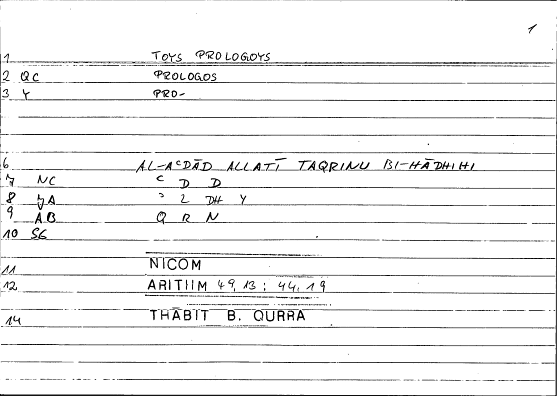 1
1 TOYS PROLOGOYS
2 QC PROLOGOS
3 Y PRO-
6 AL-AʿDĀD ALLATĪ TAQRINU BI-HĀDHIHI
7 NC ʿ D D
8 JA ʾ L DH Y
9 AB Q R N
10 SG
11 NICOM
12 ARITHM 49, 13 : 44, 19
14 THĀBIT B. QURRA